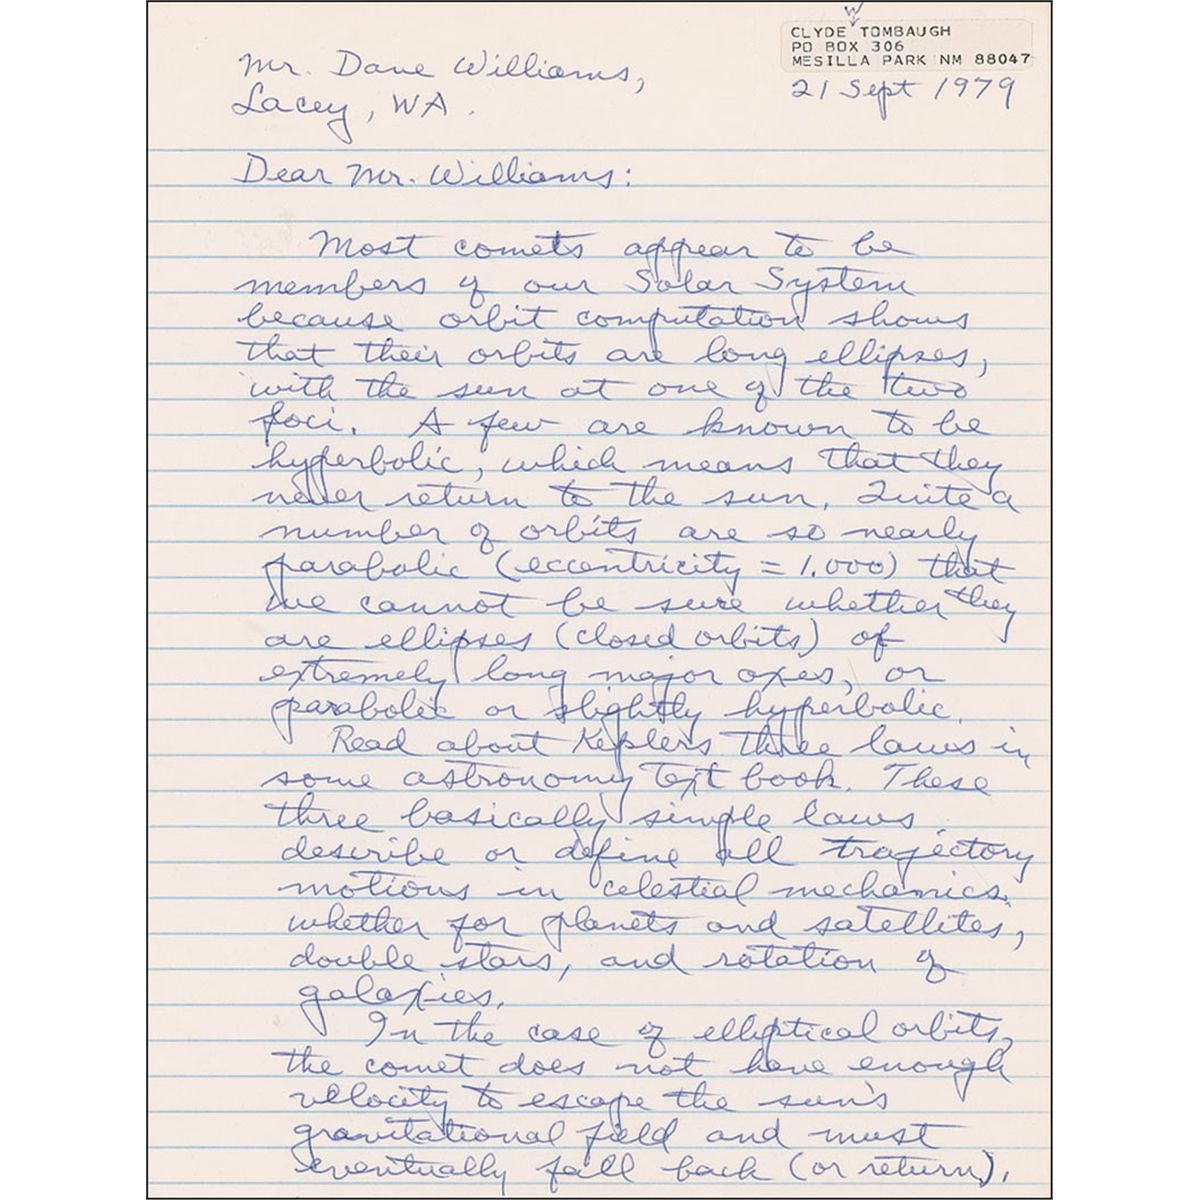 W
CLYDE TOMBAUGH
PO BOX 306
MESILLA PARK NM 88047
21 Sept 1979
Mr. Dave Williams,
Lacey, WA.
Dear Mr. Williams:
Most comets appear to be
members of our Solar System
because orbit computation shows
that their orbits are long ellipses,
with the sun at one of the two
foci. A few are known to be
hyperbolic, which means that they
never return to the sun. Quite a
number of orbits are so nearly
parabolic (eccentricity = 1.000) that
we cannot be sure whether they
are ellipses (closed orbits) of
extremely long major axes, or
parabolic or slightly hyperbolic.
Read about Keplers three laws in
some astronomy text book. These
three basically simple laws
describe or define all trajectory
motions in celestial mechanics,
whether for planets and satellites,
double stars, and rotation of
galaxies.
In the case of elliptical orbits,
the comet does not have enough
velocity to escape the sun's
gravitational field and must
eventually fall back (or return).